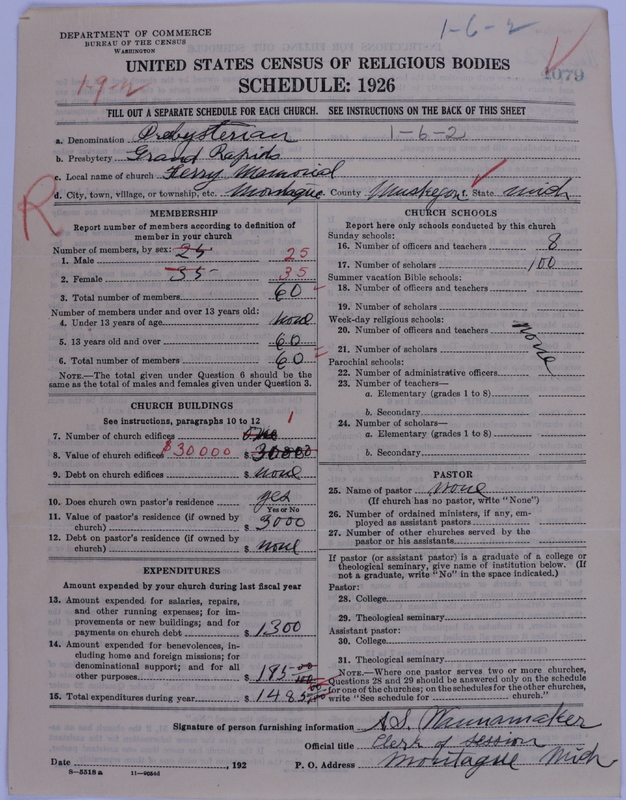 DEPARTMENT OF COMMERCE
BUREAU OF THE CENSUS
WASHINGTON
1-6-2
UNITED STATES CENSUS OF RELIGIOUS BODIES
1-9-2
SCHEDULE: 1926
4079
FILL OUT A SEPARATE SCHEDULE FOR EACH CHURCH. SEE INSTRUCTIONS ON THE BACK OF THIS SHEET
a. Denomination Presbyterian 1-6-2
b. Presbytery Grand Rapids
c. Local name of church Ferry Memorial
d. City, town, village, or township, etc. Montague County Muskegon State Mich
R
MEMBERSHIP
Report number of members according to definition of
member in your church
Number of members, by sex:
1. Male 25 25
2. Female 35 35
3. Total number of members 60
Number of members under and over 13 years old:
4. Under 13 years of age none
5. 13 years old and over 60
6. Total number of members 60
NOTE.—The total given under Question 6 should be the
same as the total of males and females given under Question 3.
CHURCH BUILDINGS
See instructions, paragraphs 10 to 12
7. Number of church edifices One 1
8. Value of church edifices $30000 $ 30000
9. Debt on church edifices $ none
10. Does church own pastor's residence yes
Yes or No
11. Value of pastor's residence (if owned by
church) $ 3000
12. Debt on pastor's residence (if owned by
church) $ none
EXPENDITURES
Amount expended by your church during last fiscal year
13. Amount expended for salaries, repairs,
and other running expenses; for im-
provements or new buildings; and for
payments on church debt $ 1300
14. Amount expended for benevolences, in-
cluding home and foreign missions; for
denominational support; and for all
other purposes $ 185
15. Total expenditures during year $ 1485
CHURCH SCHOOLS
Report here only schools conducted by this church
Sunday schools:
16. Number of officers and teachers 8
17. Number of scholars 100
Summer vacation Bible schools:
18. Number of officers and teachers
19. Number of scholars
Week-day religious schools:
20. Number of officers and teachers none
21. Number of scholars
Parochial schools:
22. Number of administrative officers
23. Number of teachers—
a. Elementary (grades 1 to 8)
b. Secondary
24. Number of scholars—
a. Elementary (grades 1 to 8)
b. Secondary
PASTOR
25. Name of pastor None
(If church has no pastor, write "None")
26. Number of ordained ministers, if any, em-
ployed as assistant pastors
27. Number of other churches served by the
pastor or his assistants
If pastor (or assistant pastor) is a graduate of a college or
theological seminary, give name of institution below. (If
not a graduate, write "No" in the space indicated.)
Pastor:
28. College
29. Theological seminary
Assistant pastor:
30. College
31. Theological seminary
NOTE.—Where one pastor serves two or more churches,
Questions 28 and 29 should be answered only on the schedule
for one of the churches; on the schedules for the other churches,
write "See schedule for church."
Signature of person furnishing information A.S. Wannamaker
Official title Clerk of Session
Date , 192 P. O. Address Montague Mich
8-5518 a 11-9034d